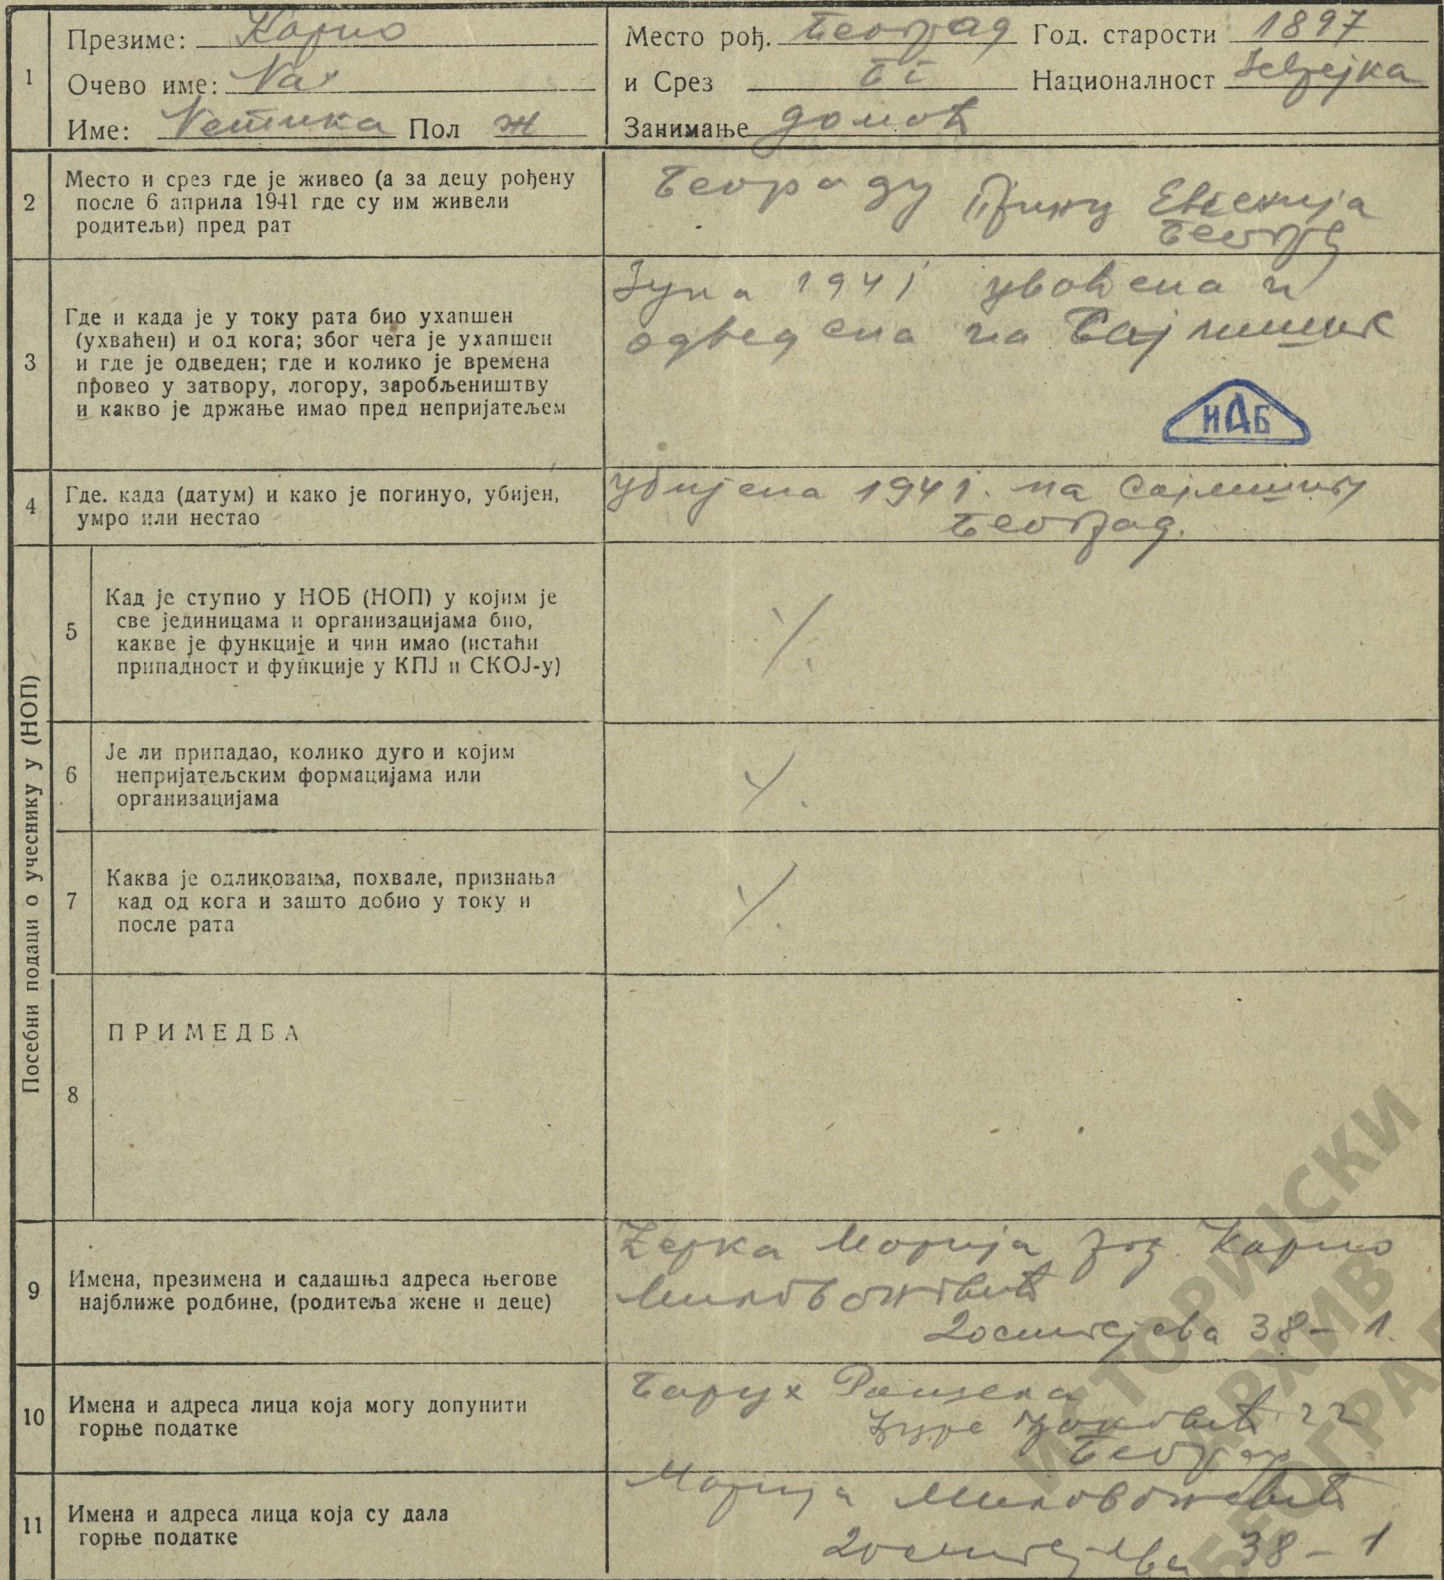 1
Презиме: Карио
Очево име:
Име: Нетика Пол ж
Место рођ. Београд Год. старости 1897
и Срез Национaлност Јеврејка
Занимање домаћ
2
Место и срез где је живео (а за децу рођену
после 6 априла 1941 где су им живели
родитељи) пред рат
Београду Принц Евгенија
Београд
3
Где и када је у току рата био ухапшен
(ухваћен) и од кога; због чега је ухапшен
и где је одведен; где и колико је времена
провео у затвору, логору, заробљеништву
и какво је држање имао пред непријатељем
Јуна 1941 и
одведена на Сајмиште
ИАБ
4
Где. када (датум) и како је погинуо, убијен,
умро или нестао
Убијена 1941. на Сајмишту
Београд.
Посебни подаци о учеснику у (НОП)
5
Кад је ступио у НОБ (НОП) у којим је
све јединицама и организацијама био,
какве је функције и чин имао (истаћи
припадност и функције у КПЈ и СКОЈ-у)
/.
6
Је ли припадао, колико дуго и којим
непријатељским формацијама или
организацијама
/.
7
Каква је одликовања, похвале, признања
кад од кога и зашто добио у току и
после рата
/.
8
ПРИМЕДБА
9
Имена, презимена и садашња адреса његове
најближе родбине, (родитеља жене и деце)
Ћерка Марија рођ. Карио
Миловановић
Доситејева 38-1.
10
Имена и адреса лица која могу допунити
горње податке
Барух Рашела
Ђуре Ђаковић 22
Београд
11
Имена и адреса лица која су дала
горње податке
Марија
Доситејева 38-1
ИСТОРИЈСКИ
АРХИВ
БЕОГРАД